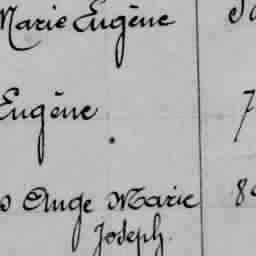 Marie Eugène
Eugène 7
Ange Marie 8
Joseph